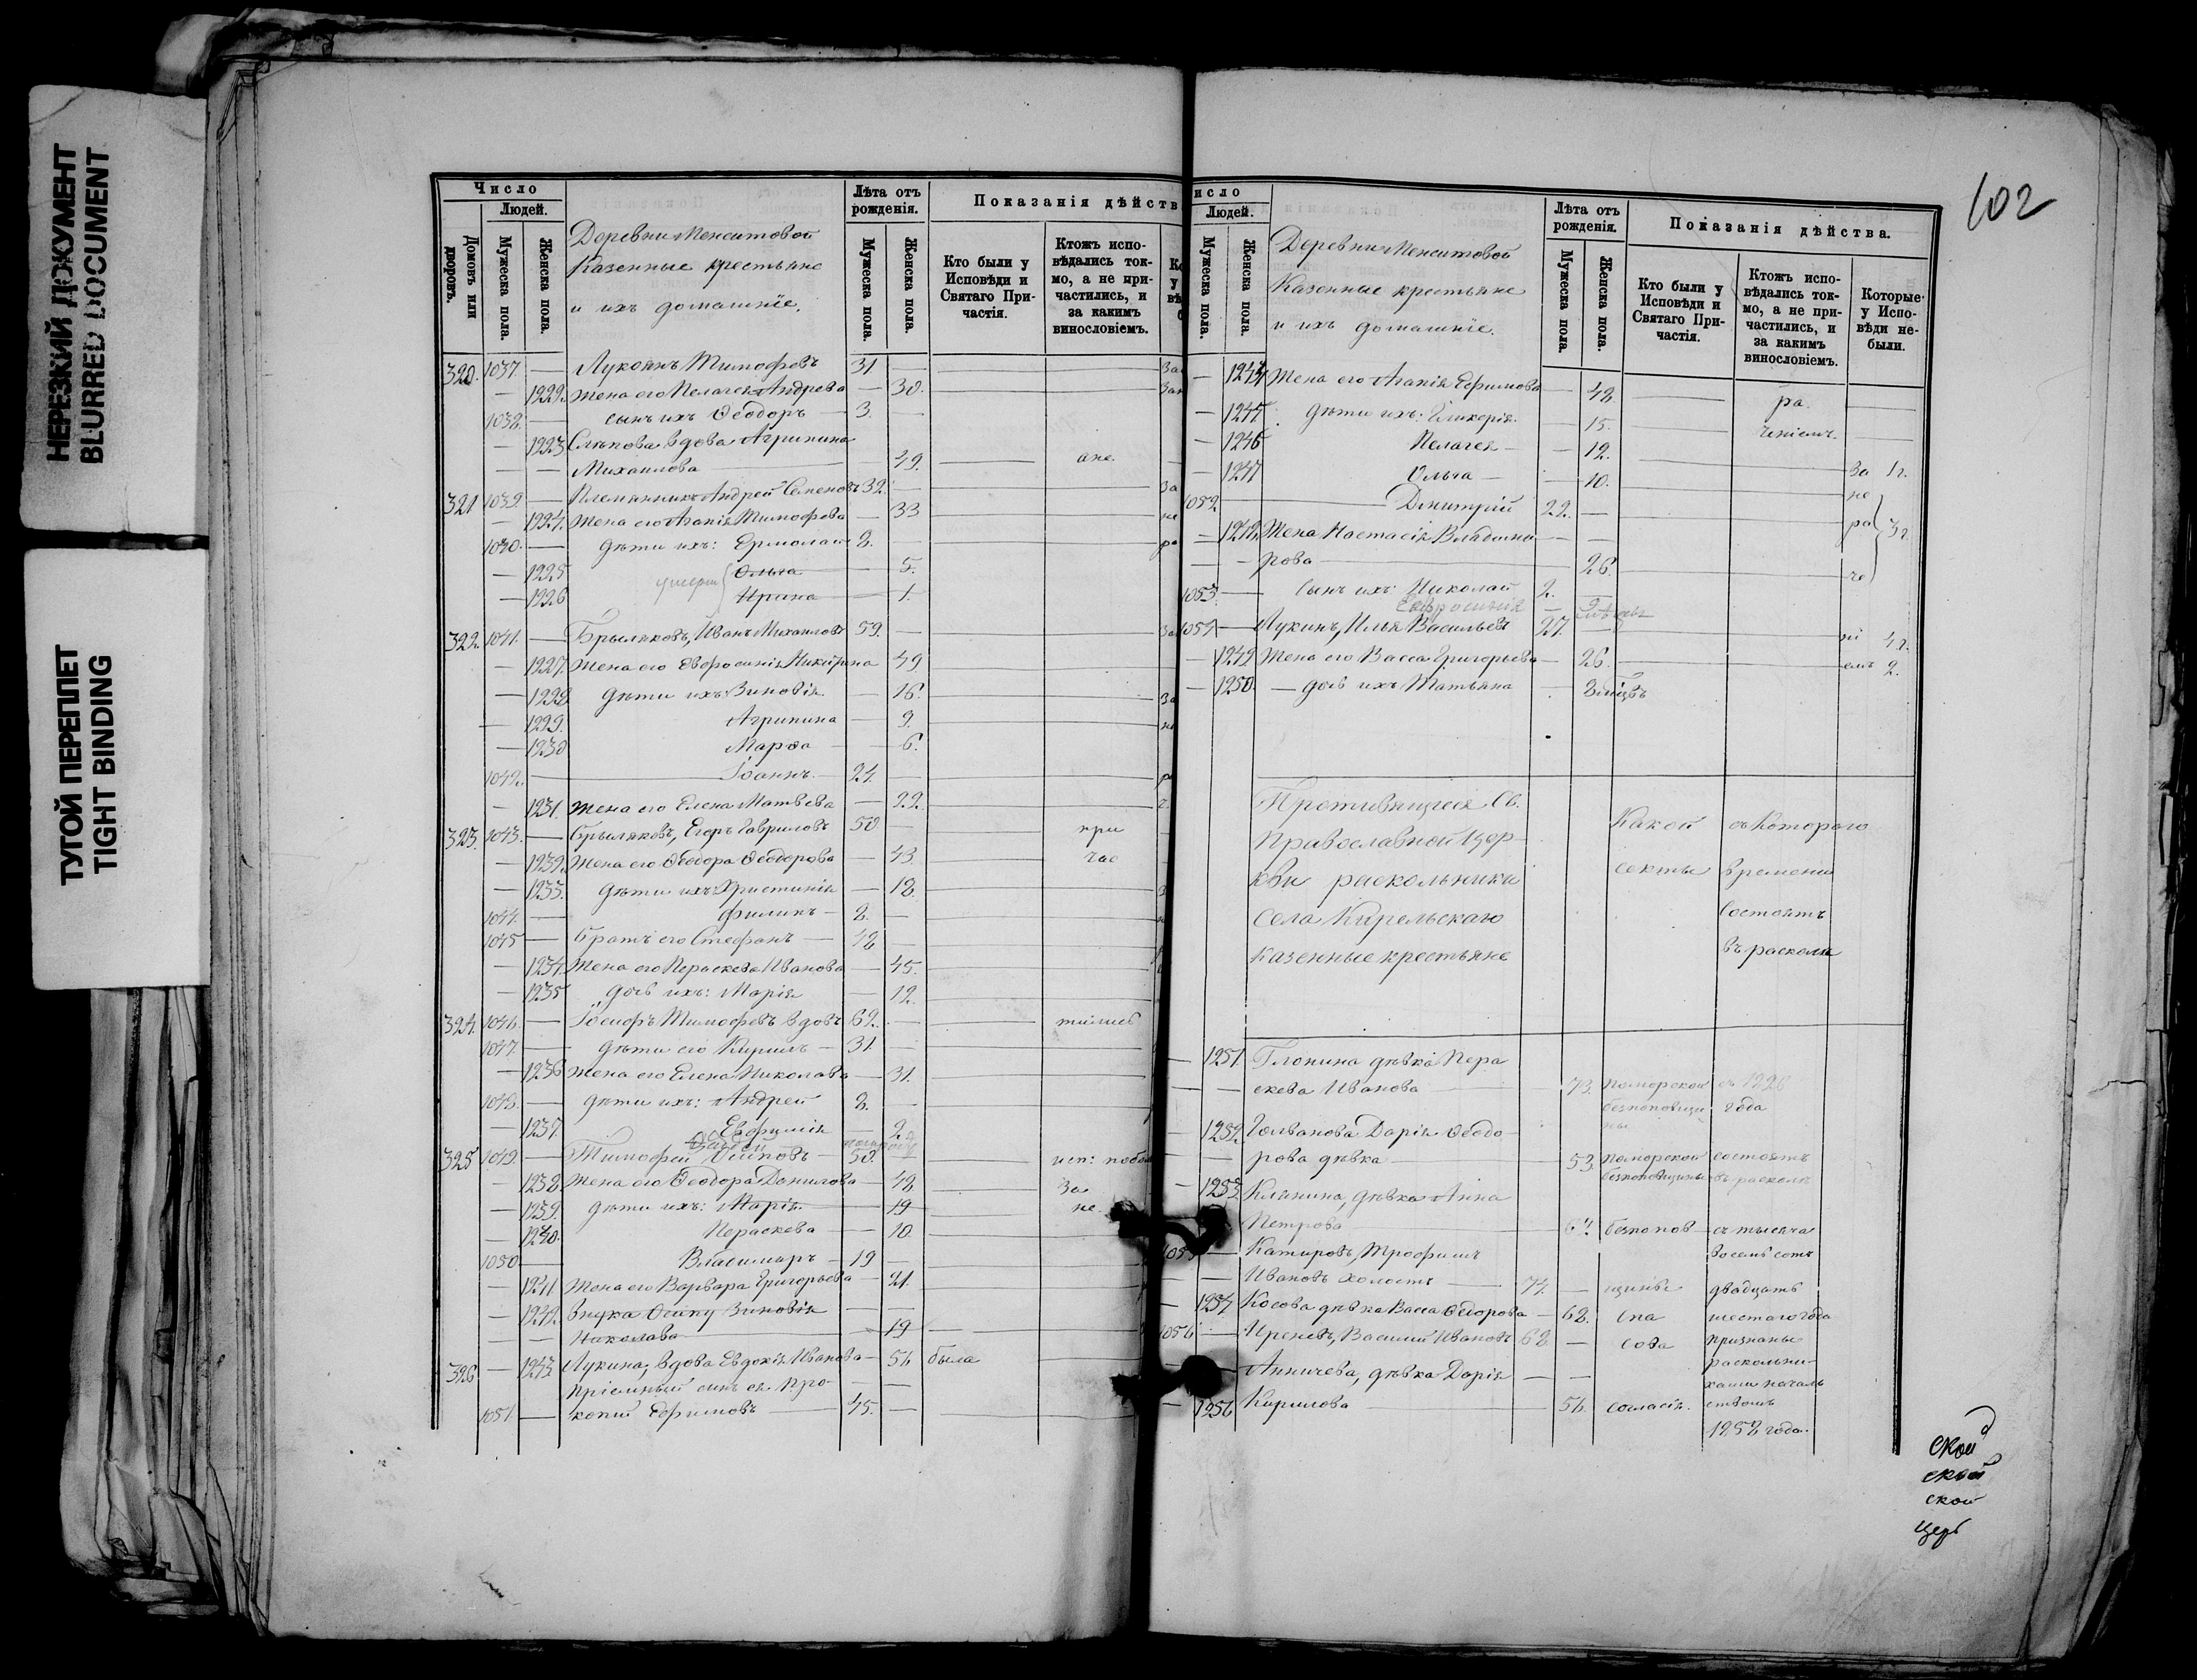 НЕРЕЗКИЙ ДОКУМЕНТ
BLURRED DOCUMENT
ТУГОЙ ПЕРЕПЛЕТ
TIGHT BINDING
102
Число
Людей.
Домовъ или дворовъ.
Мужеска пола.
Женска пола.
Деревни Менситовой
Казенные крестьяне
и ихъ домашніе.
Лѣта отъ рожденія.
Мужеска пола.
Женска пола.
Показанія дѣйств
Кто были у Исповѣди и Святаго Причастія.
Ктожъ исповѣдались токмо, а не причастились, и за какимъ винословіемъ.
320. 1037. — Лукоянъ Тимофевъ 31 —
— 1222. Жена его Пелагея Андрева — 30.
1038. — сынъ ихъ Ѳеодоръ — 3.
— 1223 Слѣпова вдова Агрипина
— — Михаилова — 49. — оне.
321 1039. — Племянникъ Андрей Семеновъ 32. — за
— 1224. Жена его Агапія Тимофева — 33 не
1040. — дѣти ихъ: Ермолай 8. — ра
— 1225 Ольга — 5.
умерли
— 1226 Ирина — 1.
322. 1041. — Брыляковъ, Иванъ Михаиловъ 59. —
— 1227. Жена его Евфросинія Никитина 49
— 1228 дѣти ихъ Зиновія — 16.
— 1229. Агрипина — 9.
— 1230 Марѳа — 6.
1042. — Іоаннъ. — 24. —
— 1231. Жена его Елена Матвѣева — 22.
323. 1043. — Брыляковъ, Егоръ Гавриловъ 50 — при
— 1232. Жена его Ѳеодора Ѳеодорова — 43. час
— 1233. дѣти ихъ: Христинія — 18.
1044. — Филипъ — 8. —
1045 — братъ его Стефанъ — 48 —
— 1234. Жена его Пераскева Иванова — 45.
— 1235 дочь ихъ: Марія — 12.
324. 1046. — Іосифъ Тимофевъ вдовъ 62. — тились
1047. — дѣти его Кирилъ — 31. —
— 1236 Жена его Елена Николава — 31.
1048. — дѣти ихъ: Андрей 8. —
— 1237. Евфимія — 2
325 1049. — Тимофей Осиповъ — 50.
— 1238. Жена его Ѳеодора Данилова — 48 за
— 1239. дѣти ихъ: Марія — 19 не
— 1240. Пераскева — 10.
1050. — Владимиръ — 19 —
— 1241 Жена его Варвара Григорьева — 21.
— 1242. внука Осипу Зиновія — —
— — Николава — 19
326. — 1243 Лукина, вдова Евдокія Иванова — 56 была
пріемный сынъ ея Про- — —
1051. — копій Ефимовъ — 45. —
исло
Людей.
Мужеска пола.
Женска пола.
Деревни Менситовой
Казенные крестьяне
и ихъ домашніе.
Лѣта отъ рожденія.
Мужеска пола.
Женска пола.
Показанія дѣйства.
Кто были у Исповѣди и Святаго Причастія.
Ктожъ исповѣдались токмо, а не причастились, и за какимъ винословіемъ.
Которые у Исповѣди небыли.
— 1244 Жена его Агапія Ефимова — 48. — ра —
— 1245. дѣти ихъ: Гликерія. — 15. — ченіемъ. —
— 1246 Пелагея — — 12.
— 1247 Ольга — — 10. за 1г.
1052. — Димитрій 22. — не
— 1248. Жена Настасія Владими — — ра 3г.
— — рова — 26. — че
1053. — сынъ ихъ: Николай 2. —
Евфросинія
1054. — Лукинъ, Илья Васильевъ 27. — ні 4г.
— 1249. Жена его Васса Григорьева — 26. — емъ 2.
— 1250. — дочь ихъ Татьяна — 3 мѣсцъ
Противящіеся Св.
Православной Цер-
кви раскольники
Села Кирельскаго
казенные крестьяне
Какой секты
съ Котораго времени
Состоятъ
въ расколѣ
— 1251. Глонина дѣвка Пера
— — скева Иванова — 73. Поморской съ 1826
безпоповщи года
— 1252. Голванова Дарія Ѳеодо-
— — рова дѣвка — 53. Поморской состоятъ
безпоповщины въ расколѣ
— 1253. Клянина, дѣвка Анна
Петрова — безпопов съ тысяча
1055 — Катировъ, Трофимъ восемь сотъ
— — Ивановъ холостъ — 74. — щинѣ двадцать
— 1254 Косова дѣвка Васса Ѳеодорова — 62. Спа шестаго года
1056 — Иреневъ, Василій Ивановъ 62 — сова признаные
Анничева, дѣвка Дарія — — раскольни-
ками началь
— 1256 Кирилова — 56. согласія. ствомъ
1858 года.
ской
ской
ской
церь